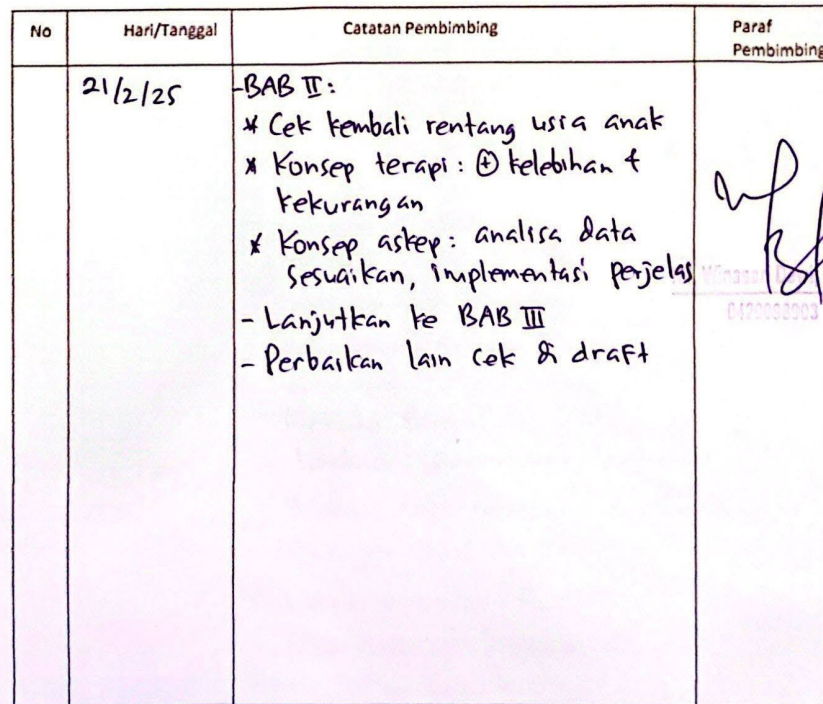 No Hari/Tanggal Catatan Pembimbing Paraf
Pembimbing
21/2/25 -BAB II:
* Cek kembali rentang usia anak
* Konsep terapi: ⊕ kelebihan &
kekurangan
* Konsep askep: analisa data
sesuaikan, implementasi perjelas
- Lanjutkan ke BAB III
- Perbaikan lain cek di draft